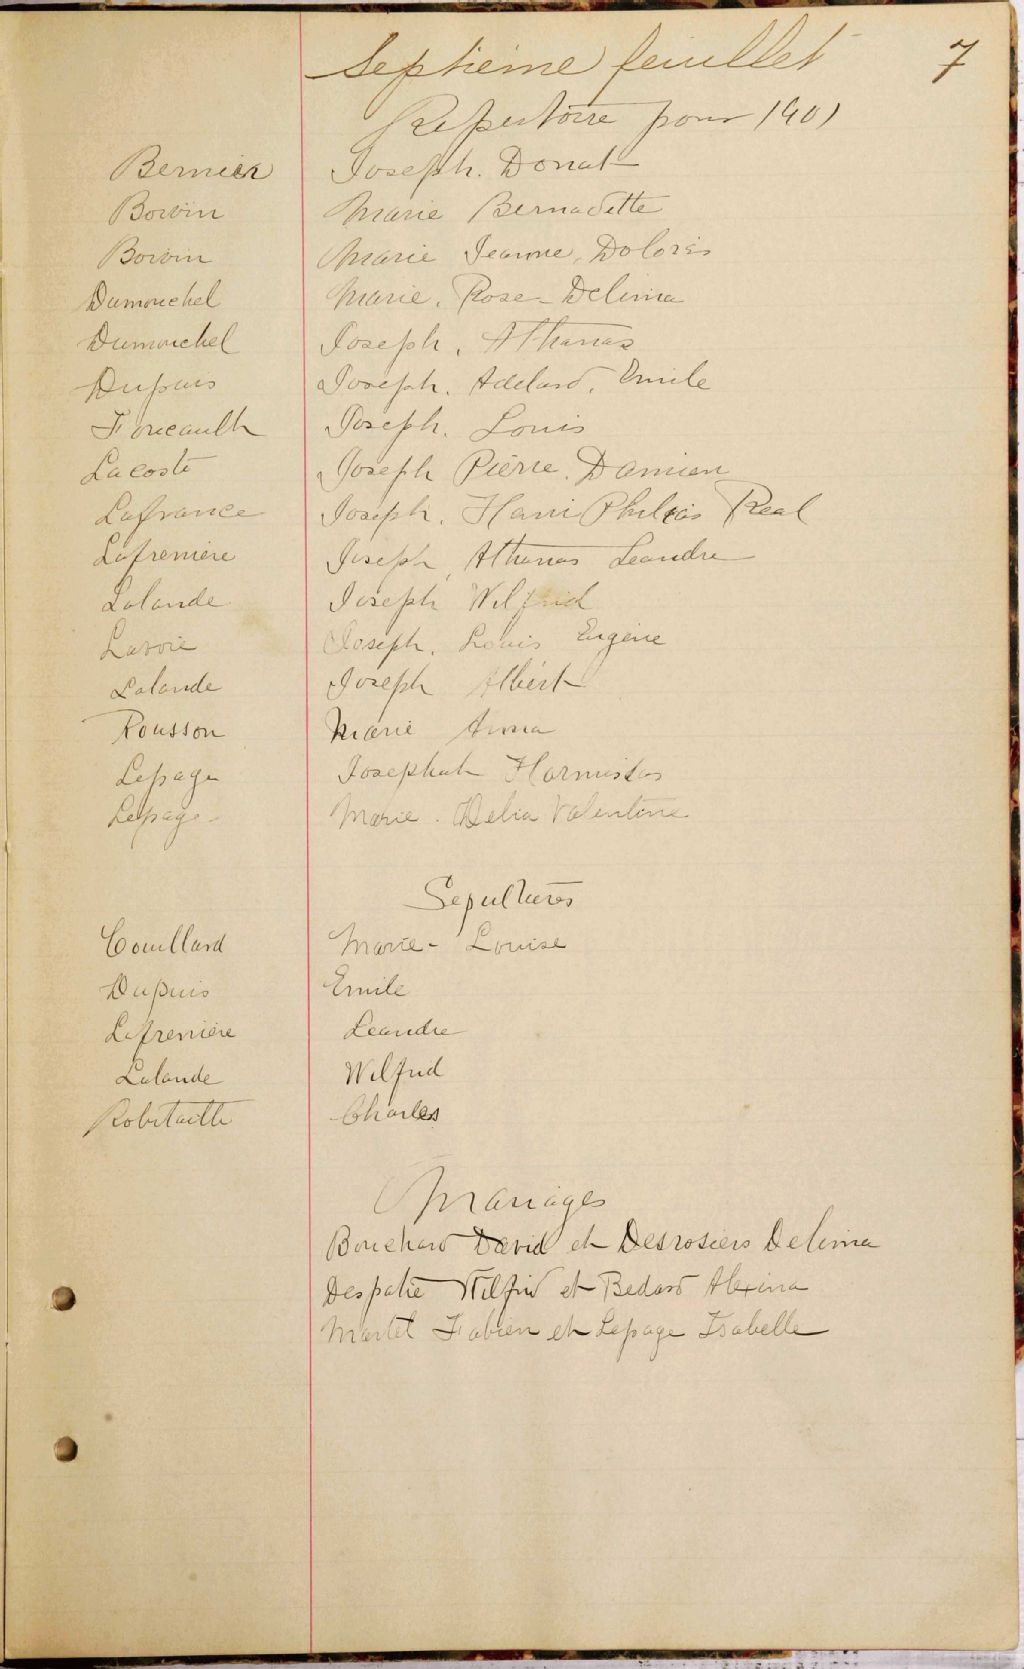 Septième feuillet 7
Répertoire pour 1901
Bernier Joseph. Donat
Boivin Marie Bernadette
Boivin Marie Jeanne, Dolorès
Dumouchel Marie. Rose-Delima
Dumouchel Joseph, Athanas
Dupuis Joseph. Adelard. Emile
Foucault Joseph. Louis
Lacoste Joseph Pierre. Damien
Lafrance Joseph. Henri Philias Real
Lafrenière Joseph, Athanas Leandre
Lalande Joseph Wilfrid
Lavoie Joseph. Louis Eugène
Lalande Joseph Albért
Rousson Marie Anna
Lepage Josephat Hormisdas
Lepage Marie. Délia Valentine
Sepultures
Couillard Marie-Louise
Dupuis Emile
Lafrenière Leandre
Lalande Wilfrid
Robitaille Charles
Mariages
Bouchard David et Desrosiers Delima
Despatie Wilfrid et Bedard Alexina
Martel Fabien et Lepage Isabelle